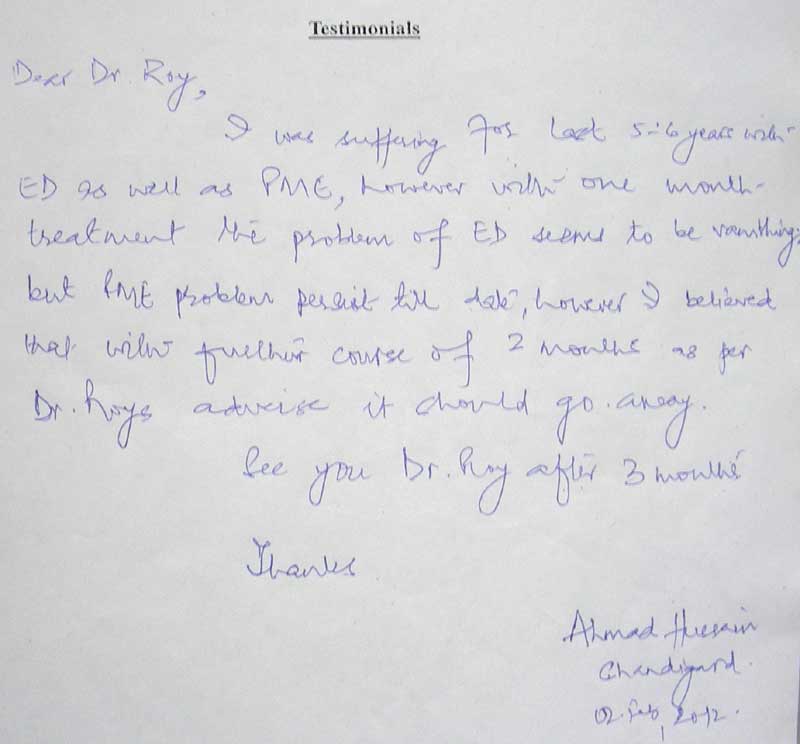 Testimonials
Dear Dr. Roy,
I was suffering for last 5-6 years with
ED as well as PME, however with one month
treatment the problem of ED seems to be vanishing;
but PME problem persist till date, however I believed
that with further course of 2 months as per
Dr. Roys advise it should go away.
See you Dr. Roy after 3 months
Thanks
Ahmad Hussain
Chandigard.
02. Feb, 2012.